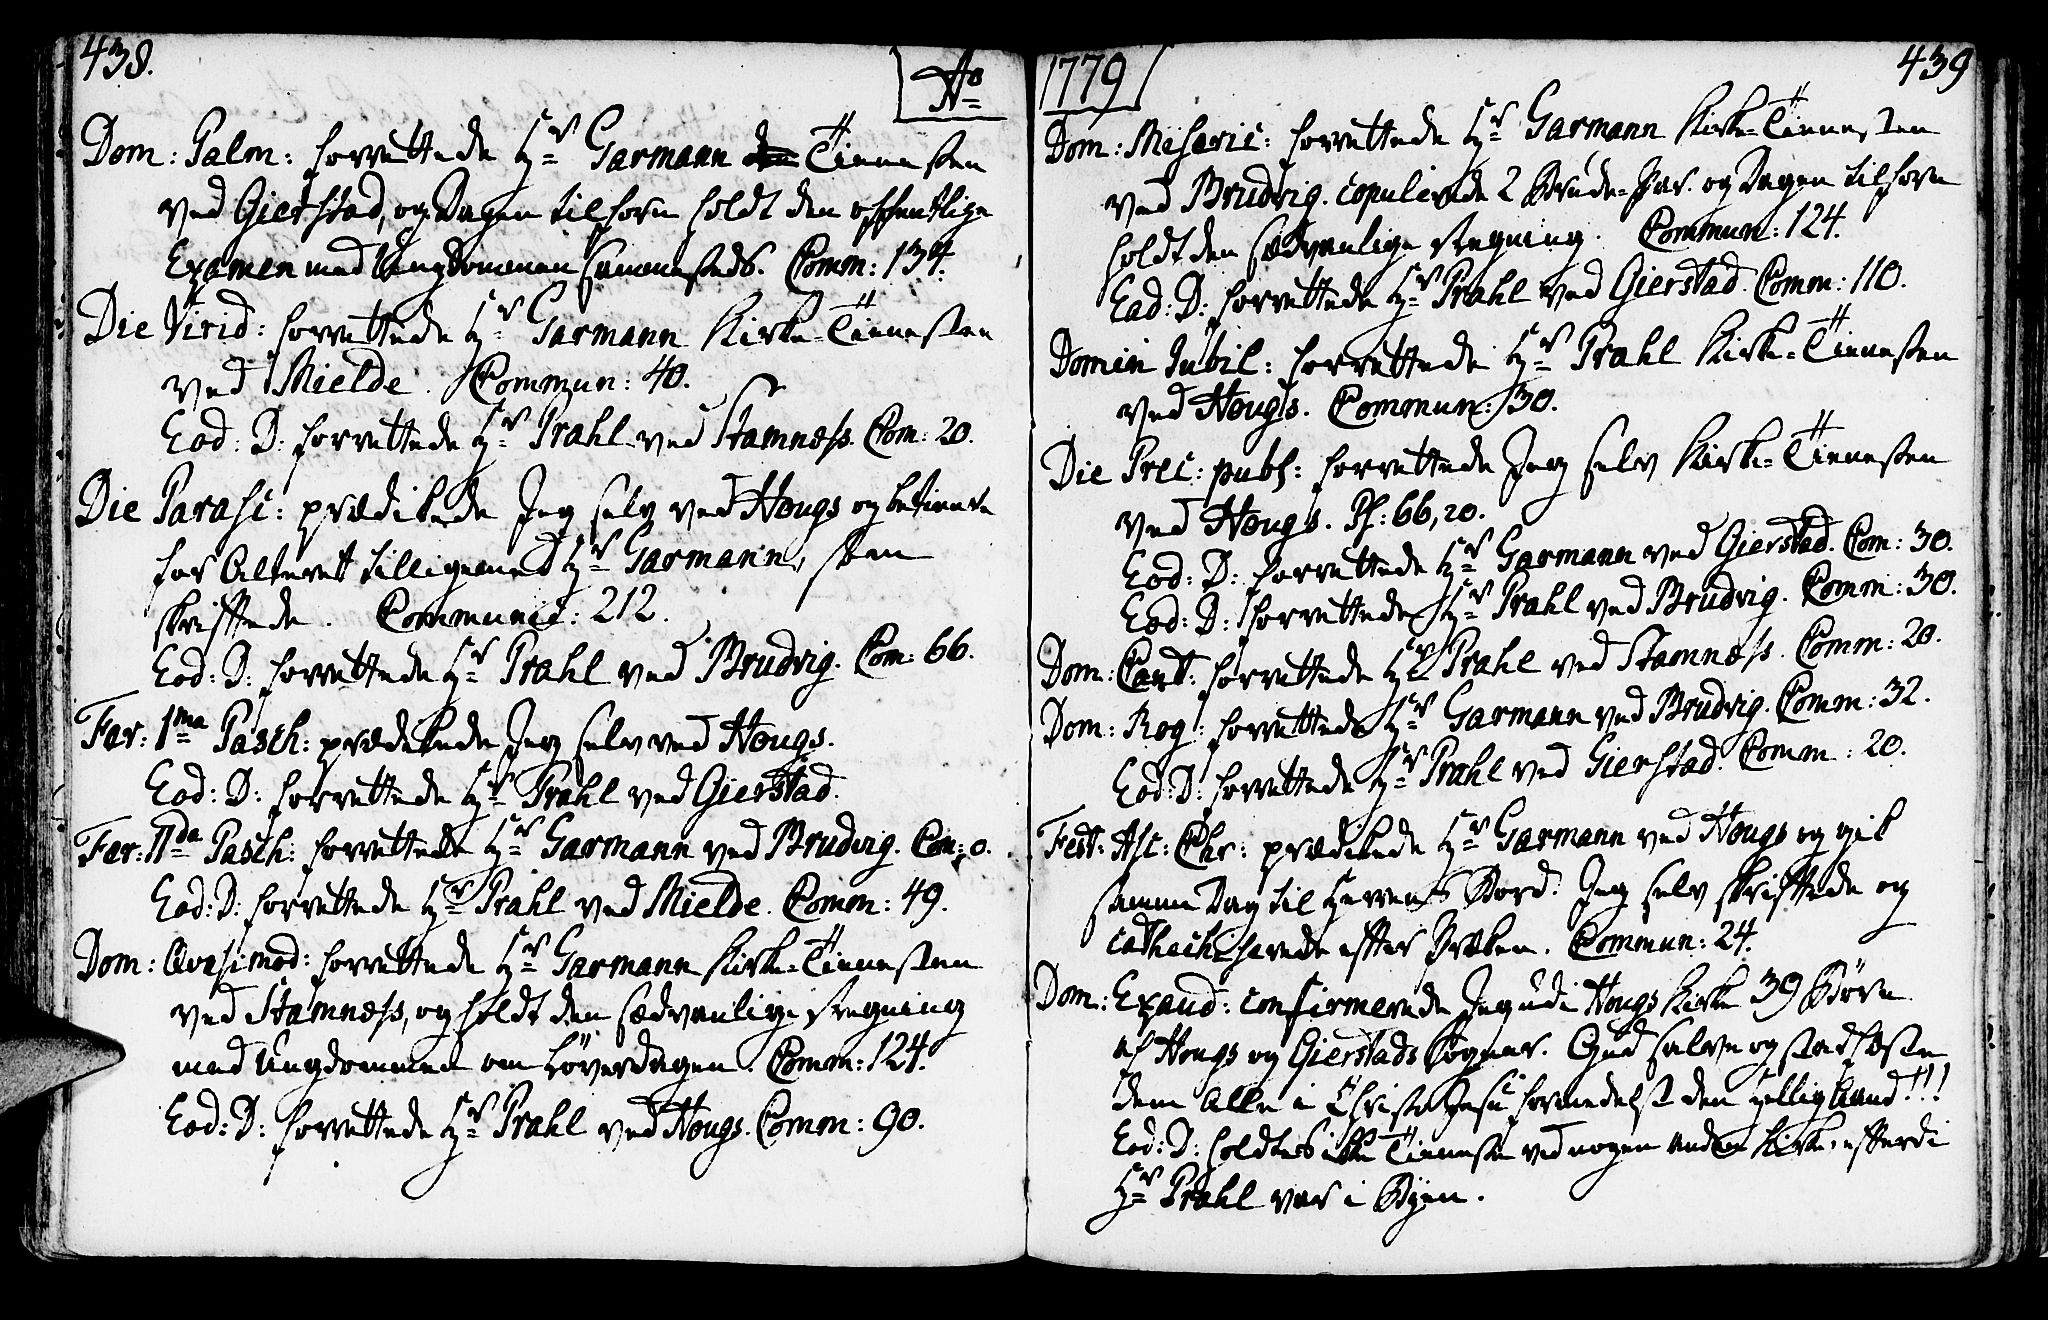 438.
Ao
Dom: Palm: forrettede Hr Garmann Tienesten
ved Gierstad, og Dagen tilforn holdt den offentlige
Examen med Ungdommen sammesteds. Comm: 134.
Die Virid: forrettede Hr Garmann Kirke-Tienesten
ved Mielde. Commun: 40.
Eod: D: forrettede Hr Prahl ved Stamness. Com: 20.
Die Parasc: prædikede Jeg selv ved Hougs og betiente
for Alteret tilligemed Hr Garmann, som
skriftede. Communic: 212.
Eod: D: forrettede Hr Prahl ved Brudvig. Com: 66.
Fer: 1ma Pasch: prædikede Jeg selv ved Hougs.
Eod: D: forrettede Hr Prahl ved Gierstad.
Fer: IIda Pasch: forrettede Hr Garmann ved Brudvig. Com: 0.
Eod: D: forrettede Hr Prahl ved Mielde. Comm: 49.
Dom: Qvasimod: forrettede Hr Garmann Kirke-Tienesten
ved Stamness, og holdt den sædvanlige Øvegning
med Ungdommen om Løverdagen. Comm: 124.
Eod: D: forrettede Hr Prahl ved Hougs. Comm: 90.
1779
439
Dom: Miseric: forrettede Hr Garmann Kirke-Tienesten
ved Brudvig. copulerede 2 Brude-Par. og Dagen tilforn
holdt den sædvanlige Commun: 124.
Ead: D: forrettede Hr Prahl ved Gierstad. Comm: 110.
Domin Jubil: forrettede Hr Prahl Kirke-Tienesten
ved Hougs. Commun: 130.
Die Prec: publ: forrettede Jeg selv Kirke-Tienesten
ved Hougs. Ps: 66, 20.
Eod: D: forrettede Hr Garmann ved Gierstad. Com: 30.
Eod: D: forrettede Hr Prahl ved Brudvig. Comm: 30.
Dom: Cant: forrettede Hr Prahl ved Stamness. Comm: 20.
Dom: Rog: forrettede Hr Garmann ved Brudvig. Comm: 32.
Eod: D: forrettede Hr Prahl ved Gierstad. Comm: 20.
Fest: Asc: Chr: prædikede Hr Garmann ved Hougs og gik
samme Dag til Herrens Bord. Jeg selv skriftede og
cathechiserede efter Præken. Commun: 24.
Dom: Exaud: confirmerede Jeg udi Hougs Kirke 39 Børn
af Hougs og Gierstads Sogner. Gud salve og stadfæste
dem Alle i Christo Jesu formedelst den Hellig Aand!!!
Eod: D: holdtes ikke Tieneste ved nogen anden Kirke, efterdi
Hr Prahl var i Byen.